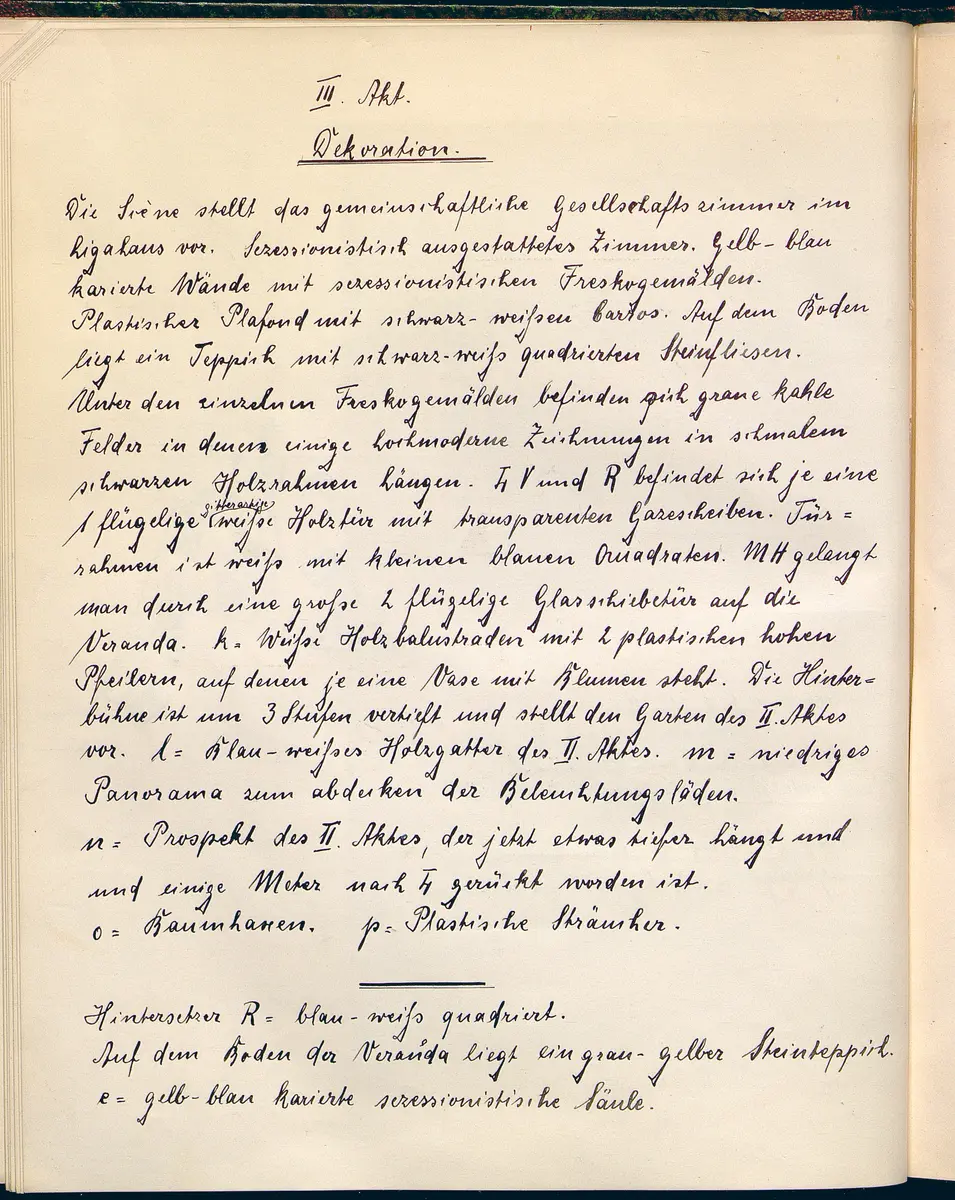 III. Akt.
Dekoration.
Die Scène stellt das gemeinschaftliche Gesellschaftszimmer im
Ligahaus vor. Sezessionistisch ausgestattetes Zimmer. Gelb-blau
karierte Wände mit sezessionistischen Freskogemälden.
Plastischer Plafond mit schwarz-weißen Cartos. Auf dem Boden
liegt ein Teppich mit schwarz-weiß quadrierten Steinfliesen.
Unter den einzelnen Freskogemälden befinden sich graue kahle
Felder in denen einige hochmoderne Zeichnungen in schmalem
schwarzen Holzrahmen hängen. L V und R befindet sich je eine
1 flügelige gitterartige weiße Holztür mit transparenten Gazescheiben. Tür=
rahmen ist weiß mit kleinen blauen Quadraten. MH gelangt
man durch eine große 2 flügelige Glasschiebetür auf die
Veranda. k= Weiße Holzbalustraden mit 2 plastischen hohen
Pfeilern, auf denen je eine Vase mit Blumen steht. Die Hinter=
bühne ist um 3 Stufen vertieft und stellt den Garten des II. Aktes
vor. l= Blau-weißes Holzgatter des II. Aktes. m = niedriges
Panorama zum abdecken der Beleuchtungsläden.
n= Prospekt des II. Aktes, der jetzt etwas tiefer hängt und
und einige Meter nach L gerückt worden ist.
o= Baumhaxen. p= Plastische Sträucher.
Hintersetzer R= blau-weiß quadriert.
Auf dem Boden der Veranda liegt ein grau-gelber Steinteppich.
e= gelb-blau karierte sezessionistische Säule.